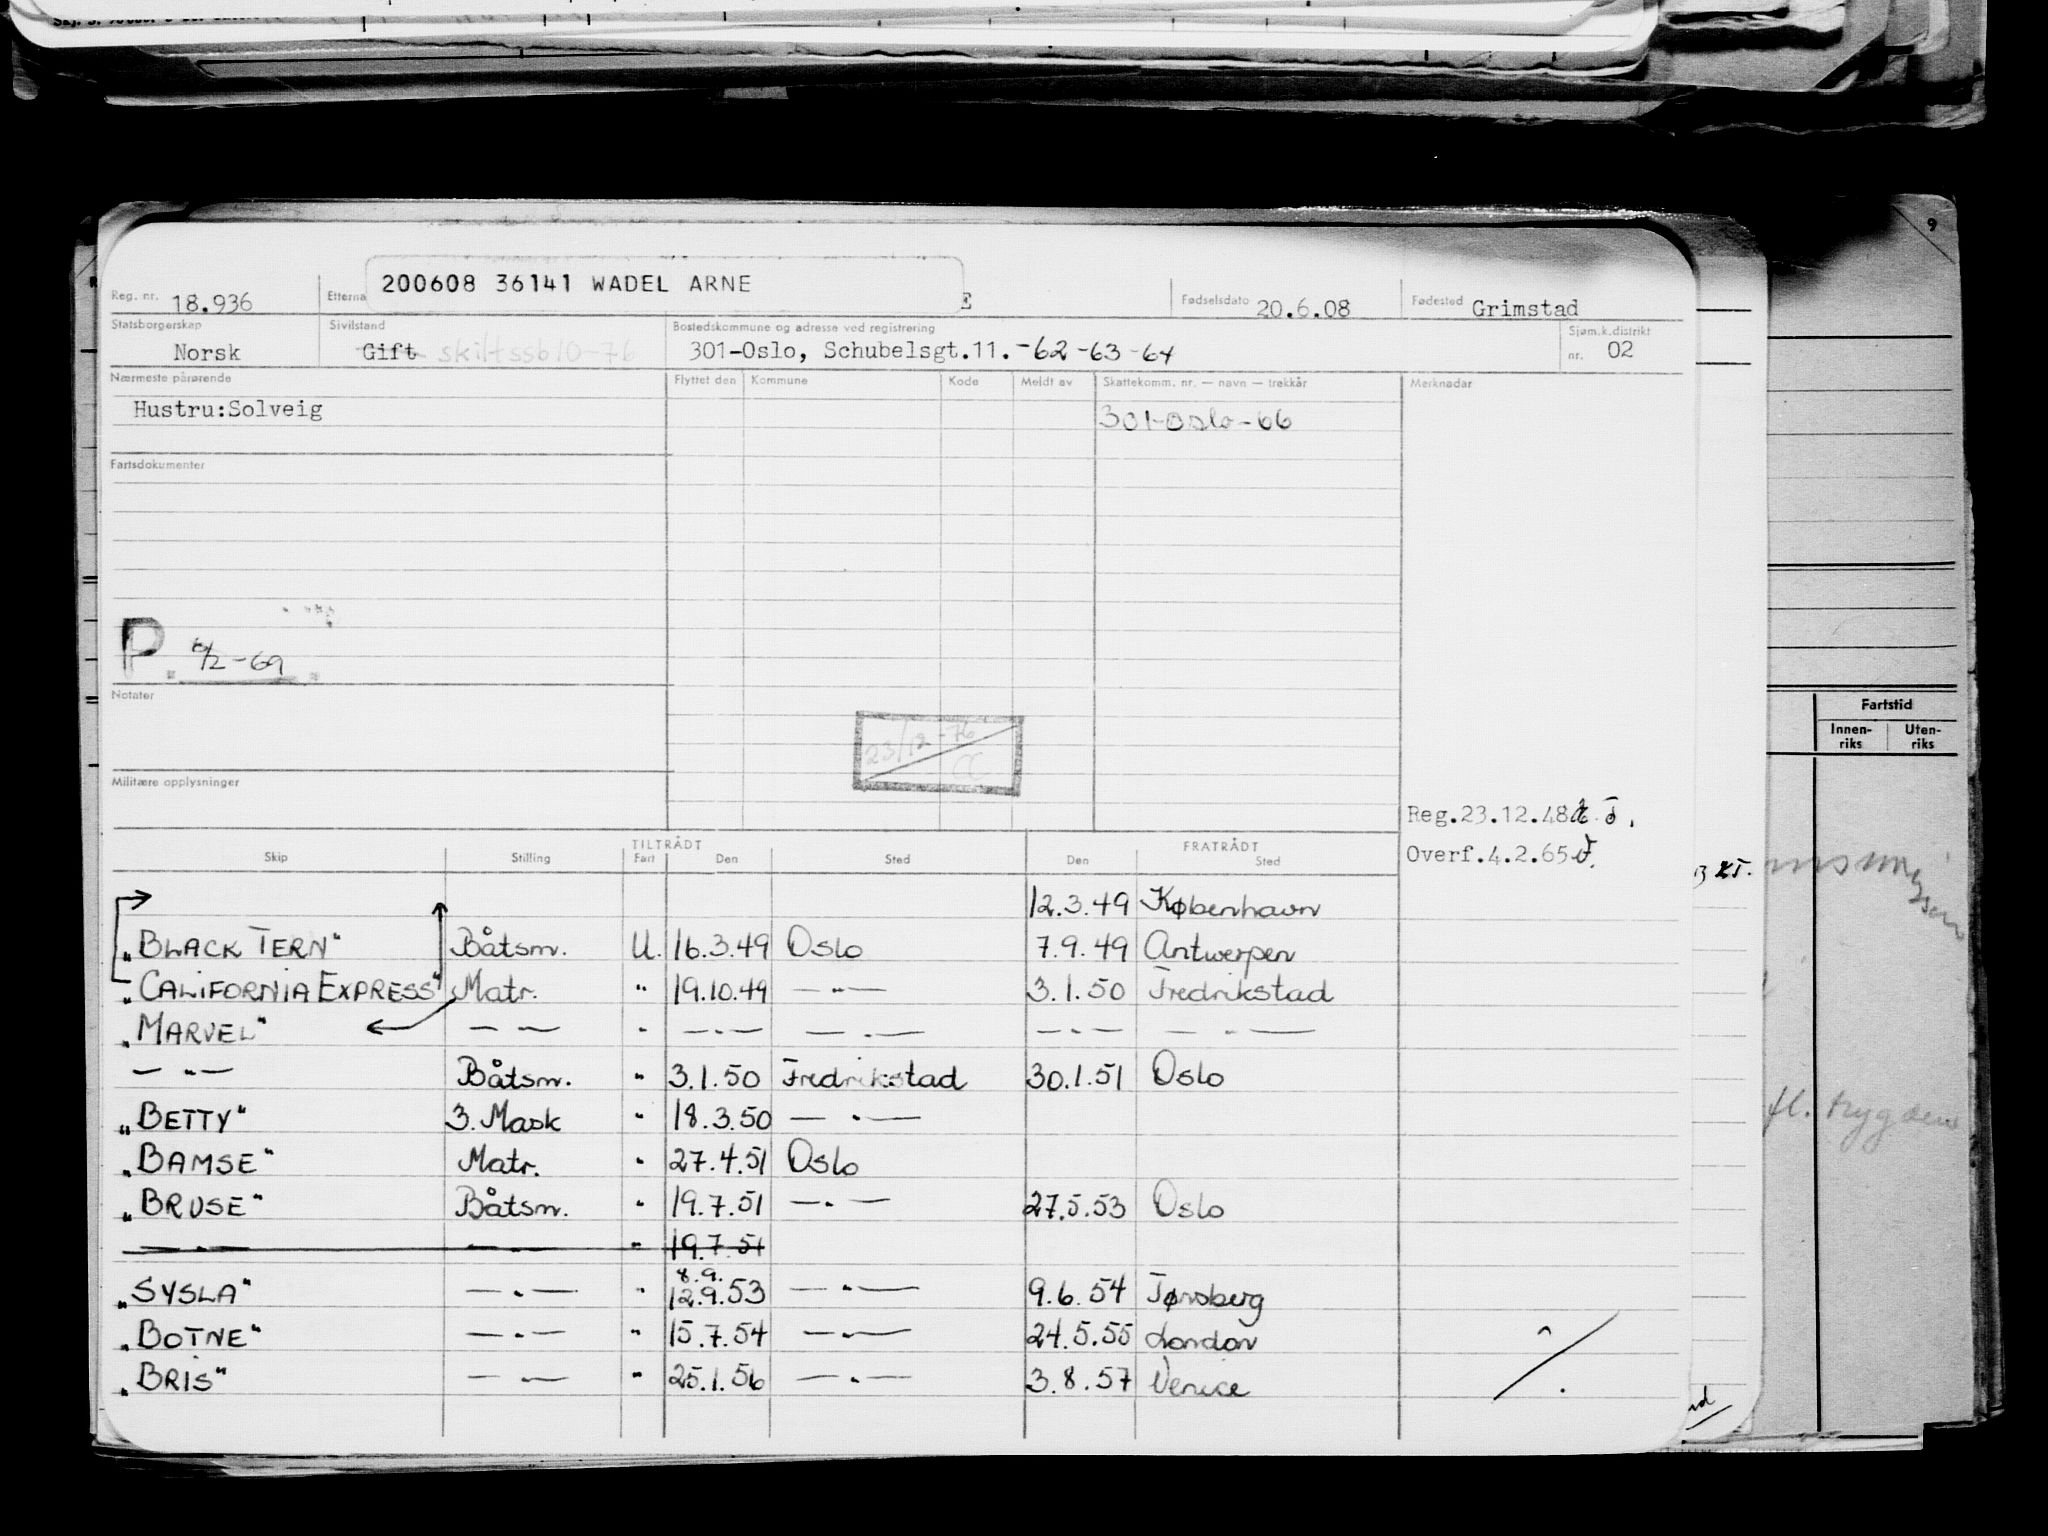 9
200608 36141 WADEL ARNE
Reg. nr. 18.936 Etterna E Fødselsdato 20.6.08 Fødested Grimstad
Statsborgerskap Sivilstand Bostedskommune og adresse ved registrering Sjøm.k.distrikt
Norsk Gift skilt ssb 10-76 301-Oslo, Schubelsgt.11. -62-63-64 nr. 02
Nærmeste pårørende Flyttet den Kommune Kode Meldt av Skattekomm. nr. — navn — trekkår Merknader
Hustru:Solveig 301-Oslo-66
Fartsdokumenter
P. 6/2-69
Notater
23/12-76
CC
Militære opplysninger
Reg.23.12.48
Overf.4.2.65
Fartstid
Innen-riks Uten-riks
TILTRÅDT FRATRÅDT
Skip Stilling Fart Den Sted Den Sted
12.3.49 København
"BLACK TERN" Båtsm. U. 16.3.49 Oslo 7.9.49 Antwerpen
"CALIFORNIA EXPRESS" Matr. " 19.10.49 — " — 3.1.50 Fredrikstad
"MARVEL" — — " — " — — " — — " — — " —
— " — Båtsm. " 3.1.50 Fredrikstad 30.1.51 Oslo
"BETTY" 3. Mask " 18.3.50 — " —
"BAMSE" Matr. " 27.4.51 Oslo
"BRUSE" Båtsm. " 19.7.51 — " — 27.5.53 Oslo
— " — — " — " 19.7.51
8.9.
"SYSLA" — " — " 12.9.53 — " — 9.6.54 Tønsberg
"BOTNE" — " — " 15.7.54 — " — 24.5.55 London
"BRIS" — " — " 25.1.56 — " — 3.8.57 Venice
fl. trygden